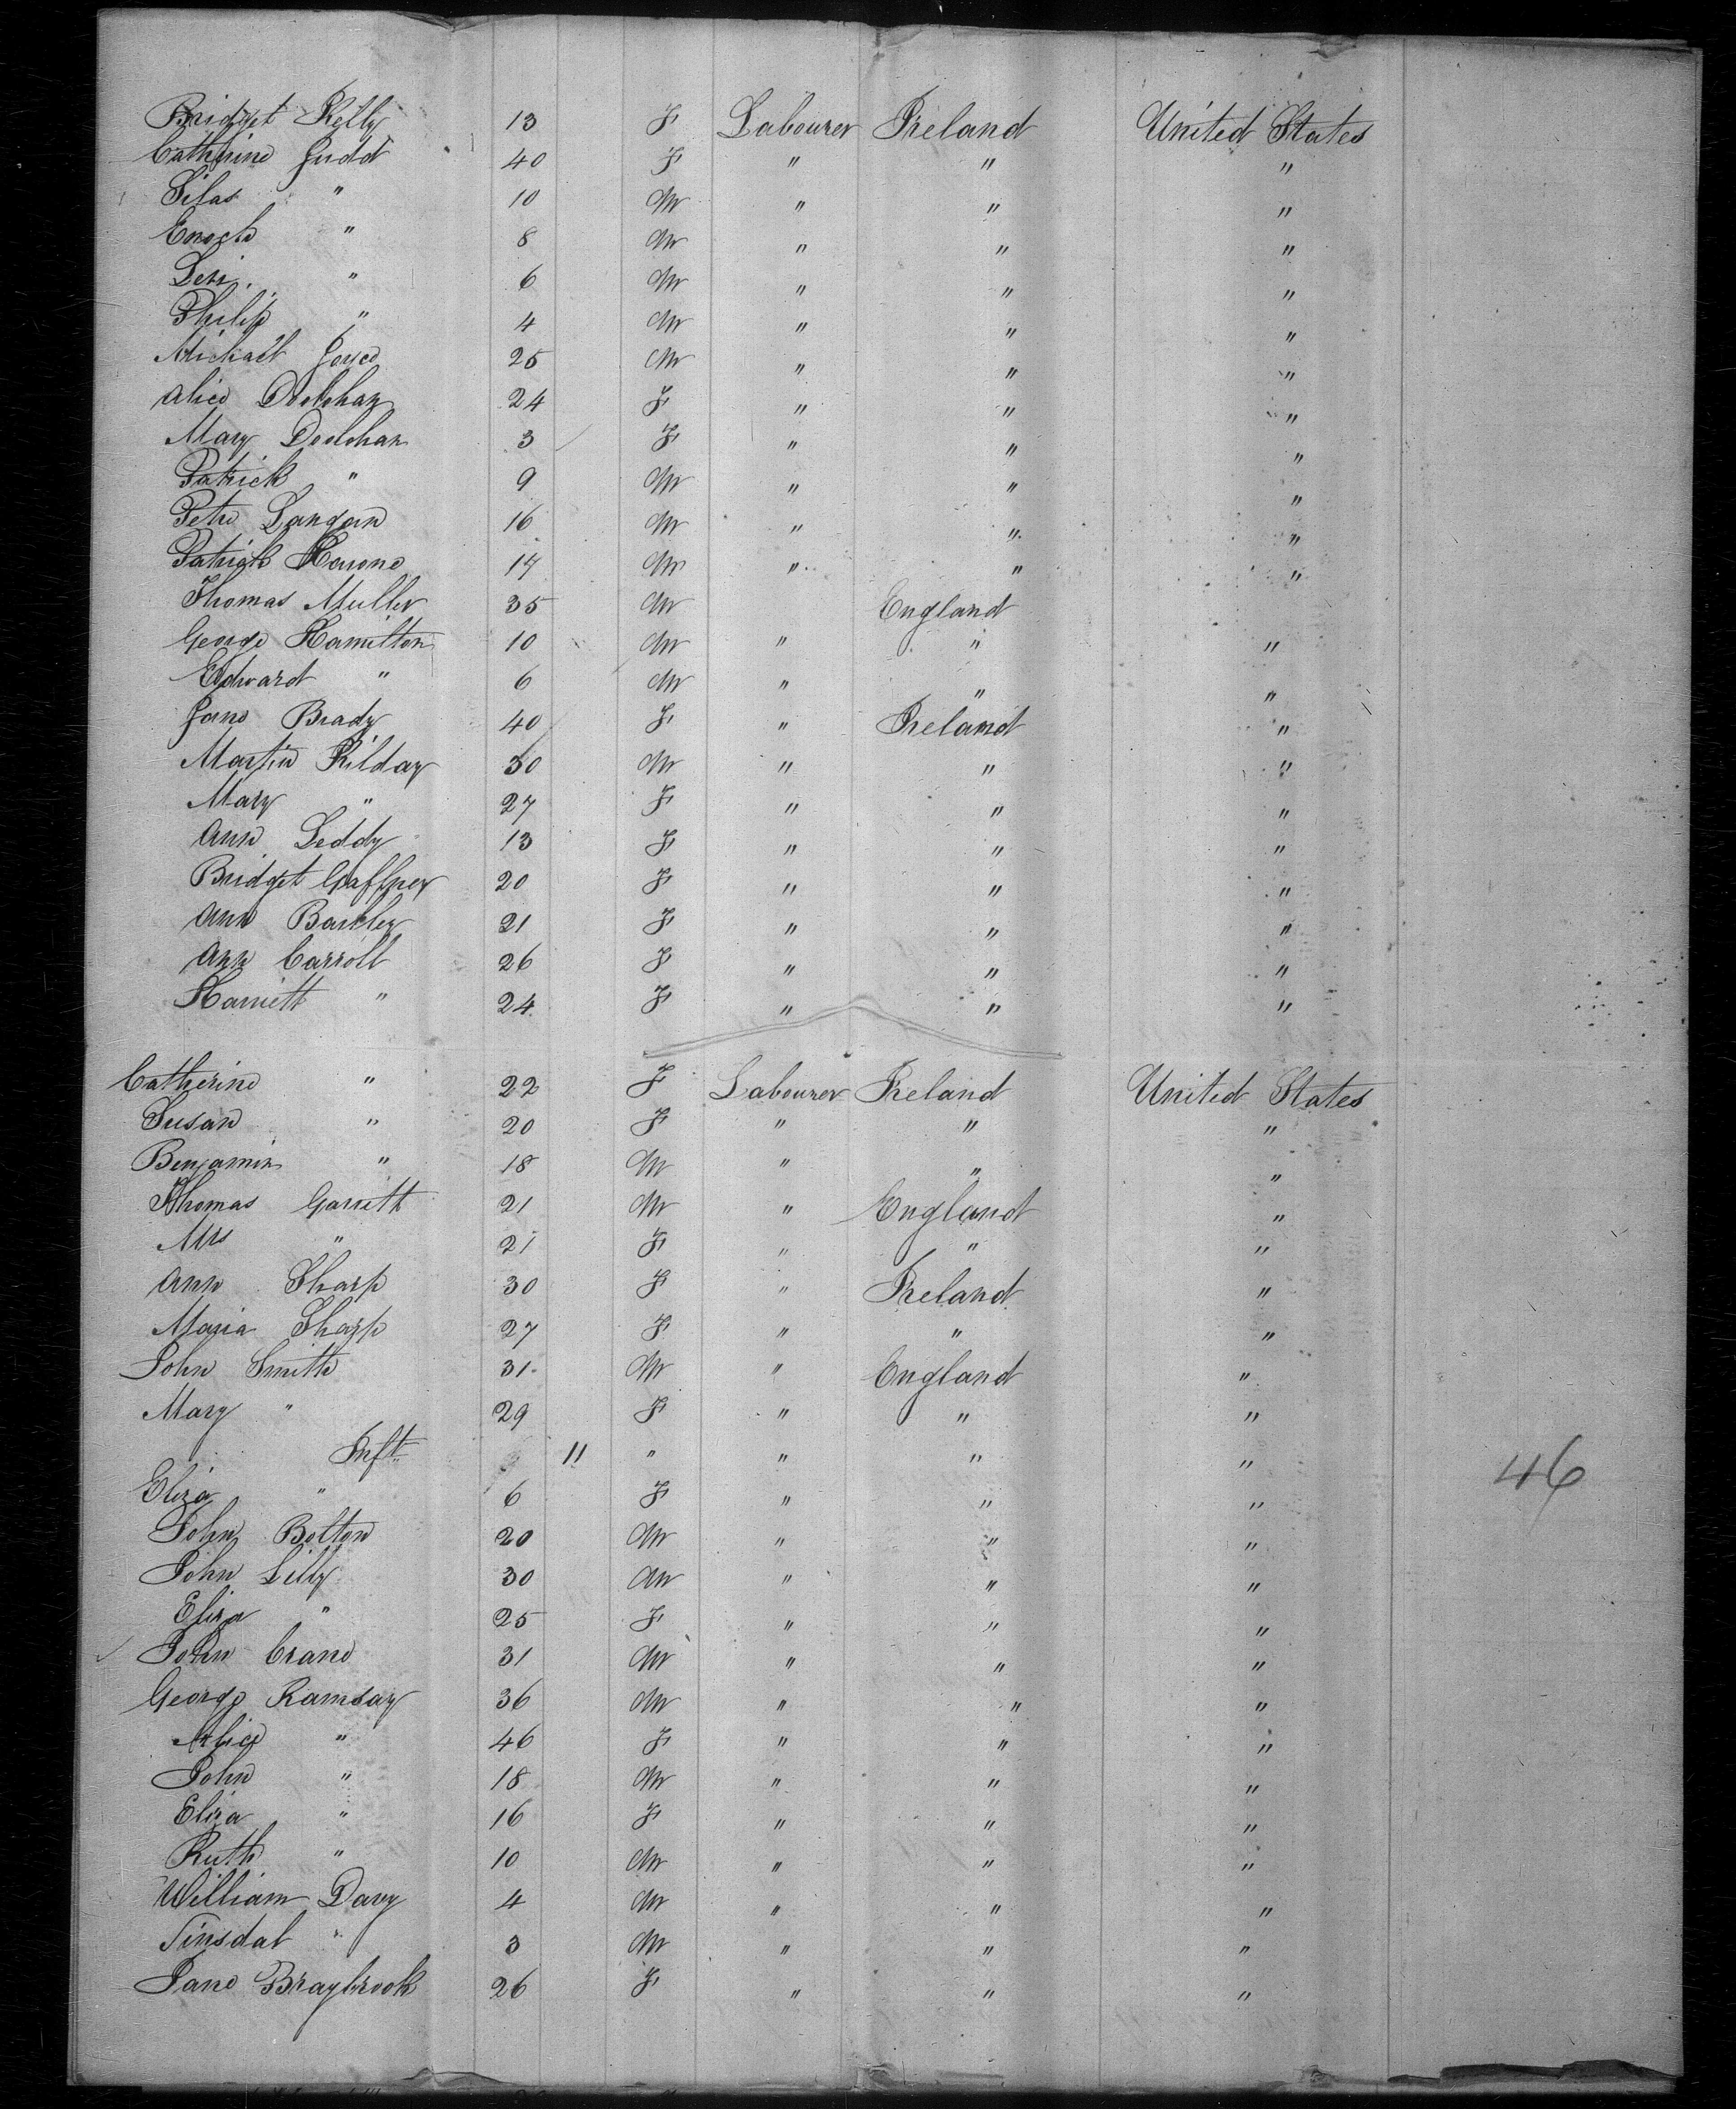 Bridget Kelly 13 F Labourer Ireland United States
Catherine Judd 40 F " " "
Silas " 10 M " " "
Enoch " 8 M " " "
Levi " 6 M " " "
Philip " 4 M " " "
Michael Joyce 25 M " " "
Alice Doolohan 24 F " " "
Mary Doolohan 3 F " " "
Patrick " 9 M " " "
Peter Langan 16 M " " "
Patrick 17 M " " "
Thomas Muller 35 M England
George Hamilton 10 M " " "
Edward " 6 M " " "
Jane Brady 40 F " Ireland "
Martin Kilday 30 M " " "
Mary " 27 F " " "
Ann Leddy 13 F " " "
Bridget Gaffney 20 F " " "
Ann Barkley 21 F " " "
Ann Carroll 26 F " " "
Harriett " 24 F " " "
Catherine " 22 F Labourer Ireland United States
Susan " 20 F " " "
Benjamin " 18 M " " "
Thomas Garrett 21 M " England "
Mrs " 21 F " " "
Ann Sharp 30 F " Ireland "
Maria Sharp 27 F " " "
John Smith 31 M " England "
Mary " 29 F " " "
Inft 11 " " " "
Eliza " 6 F " " " 46
John Bolton 20 M " " "
John Lilly 30 M " " "
Eliza " 25 F " " "
John Crane 31 M " " "
George Ramsay 36 M " " "
Alice " 46 F " " "
John " 18 M " " "
Eliza " 16 F " " "
Ruth " 10 M " " "
William Davy 4 M " " "
Tinsdal " 3 M " " "
Jane Braybrook 26 F " " "